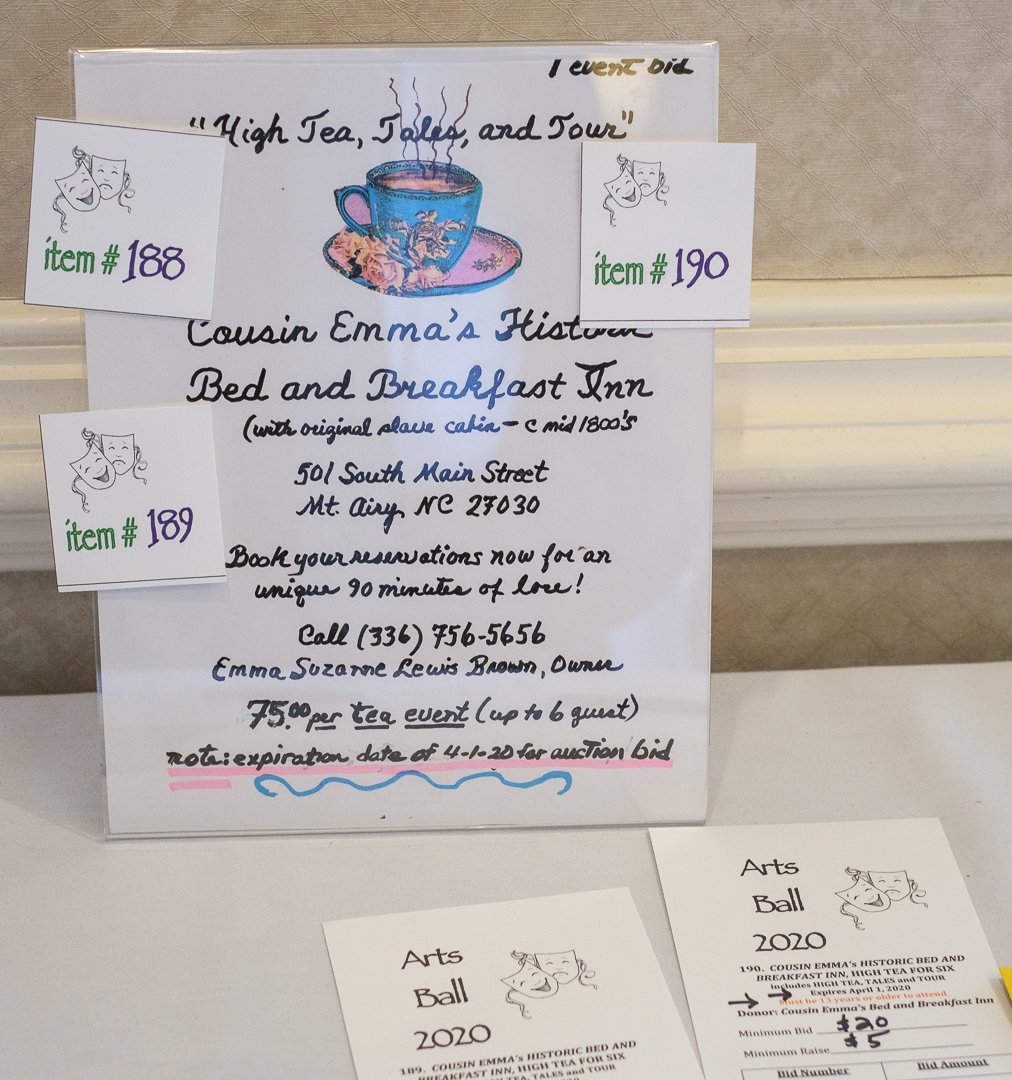 1 event bid
"High Tea, Tales, and Tour"
item # 188
item # 190
Cousin Emma's Historic
Bed and Breakfast Inn
(with original slave cabin - c mid 1800's
item # 189
501 South Main Street
Mt. Airy, NC 27030
Book your reservations now for an
unique 90 minutes of lore!
Call (336) 756-5656
Emma Suzanne Lewis Brown, Owner
75.00 per tea event (up to 6 guest)
note: expiration date of 4-1-20 for auction bid
Arts
Ball
2020
190. COUSIN EMMA's HISTORIC BED AND
BREAKFAST INN, HIGH TEA FOR SIX
Includes HIGH TEA, TALES and TOUR
Expires April 1, 2020
Must be 13 years or older to attend
Donor: Cousin Emma's Bed and Breakfast Inn
Minimum Bid $20
Minimum Raise $5
Bid Number Bid Amount
Arts
Ball
2020
189. COUSIN EMMA's HISTORIC BED AND
BREAKFAST INN, HIGH TEA FOR SIX
HIGH TEA, TALES and TOUR